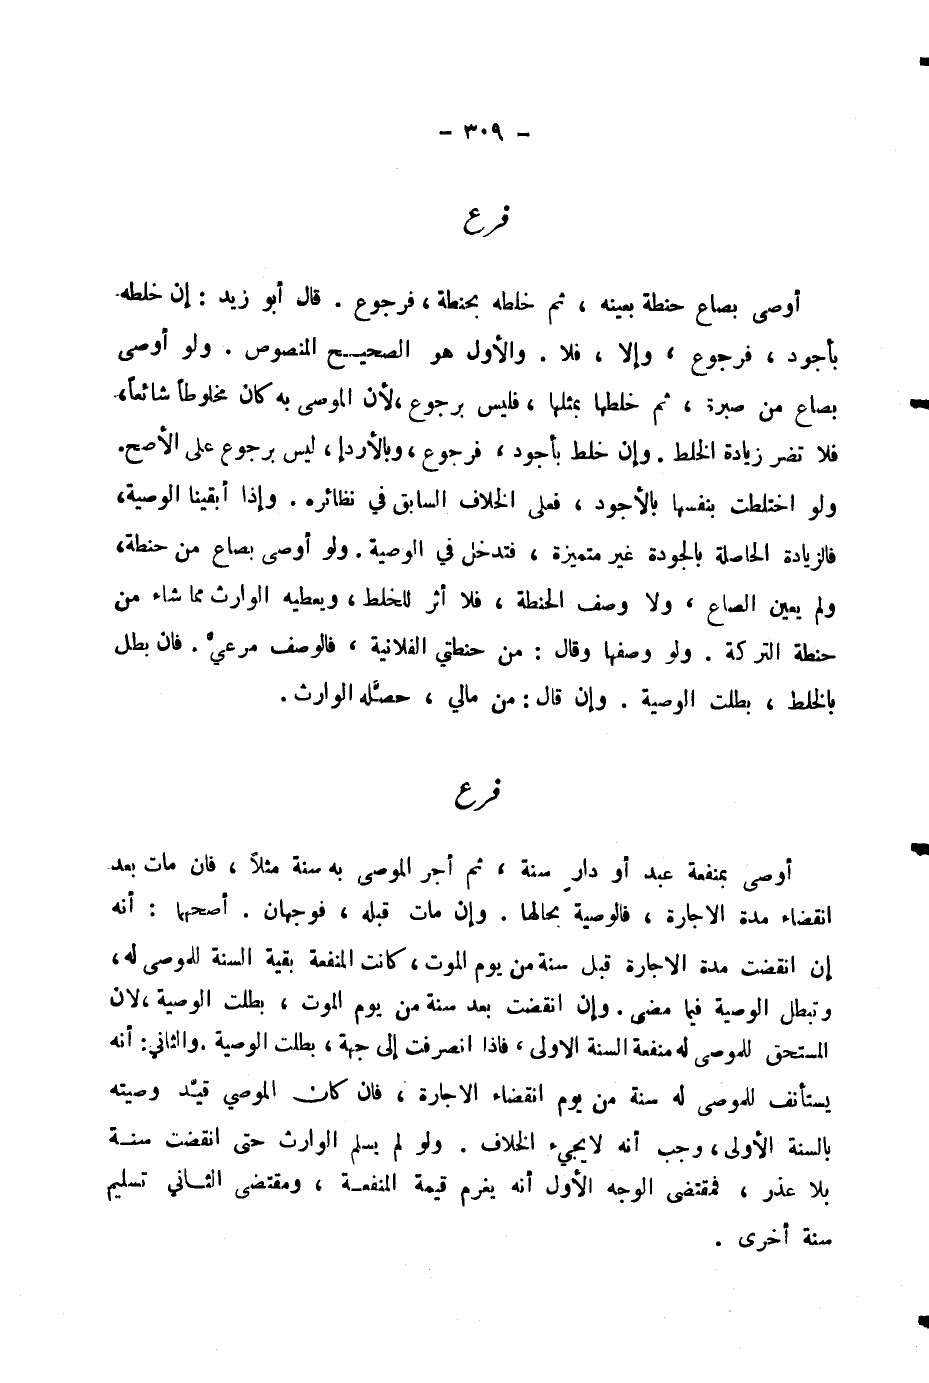 - ٣٠٩ -
فرع
أوصى بصاع حنطة بعينه ، ثم خلطه بحنطة ، فرجوع . قال أبو زيد : إن خلطه
بأجود ، فرجوع ، وإلا ، فلا . والأول هو الصحيح المنصوص . ولو أوصى
بصاع من صبرة ، ثم خلطها بمثلها ، فليس برجوع ، لأن الموصى به كان مخلوطاً شائعاً،
فلا تضر زيادة الخلط . وإن خلط بأجود ، فرجوع ، وبالأردإ ، ليس برجوع على الأصح.
ولو اختلطت بنفسها بالأجود ، فعلى الخلاف السابق في نظائره . وإذا أبقينا الوصية،
فالزيادة الحاصلة بالجودة غير متميزة ، فتدخل في الوصية . ولو أوصى بصاع من حنطة،
ولم يعين الصاع ، ولا وصف الحنطة ، فلا أثر للخلط ، ويعطيه الوارث مما شاء من
حنطة التركة . ولو وصفها وقال : من حنطتي الفلانية ، فالوصف مرعيٌّ . فان بطل
بالخلط ، بطلت الوصية . وإن قال : من مالي ، حصَّله الوارث .
فرع
أوصى بمنفعة عبد أو دارٍ سنة ، ثم أجر الموصى به سنة مثلاً ، فان مات بعد
انقضاء مدة الاجارة ، فالوصية بحالها . وإن مات قبله ، فوجهان . أصحها : أنه
إن انقضت مدة الاجارة قبل سنة من يوم الموت ، كانت المنفعة بقية السنة للموصى له،
وتبطل الوصية فيما مضى . وإن انقضت بعد سنة من يوم الموت ، بطلت الوصية ، لان
المستحق للموصى له منفعة السنة الاولى ، فاذا انصرفت إلى جهة ، بطلت الوصية . والثاني: أنه
يستأنف للموصى له سنة من يوم انقضاء الاجارة ، فان كان الموصي قيَّد وصيته
بالسنة الأولى ، وجب أنه لا يجيء الخلاف . ولو لم يسلم الوارث حتى انقضت سنة
بلا عذر ، فمقتضى الوجه الأول أنه يغرم قيمة المنفعة ، ومقتضى الثاني تسليم
سنة أخرى .